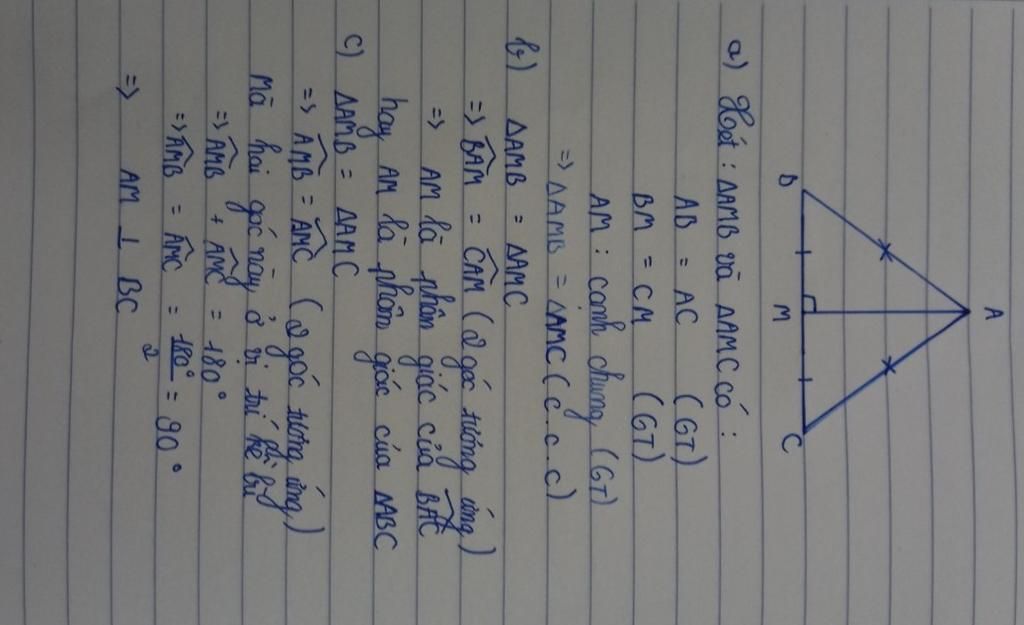 A
B
M
C
a) Xét : ΔAMB và ΔAMC có :
AB = AC (GT)
BM = CM (GT)
AM : cạnh chung (GT)
=> ΔAMB = ΔAMC (c.c.c)
b) ΔAMB = ΔAMC
=> BAM = CAM (2 góc tương ứng)
=> AM là phân giác của BAC
hay AM là phân giác của ΔABC
c) ΔAMB = ΔAMC
=> AMB = AMC (2 góc tương ứng)
Mà hai góc này ở vị trí kề bù
=> AMB + AMC = 180°
=> AMB = AMC = 180°/2 = 90°
=> AM ⊥ BC